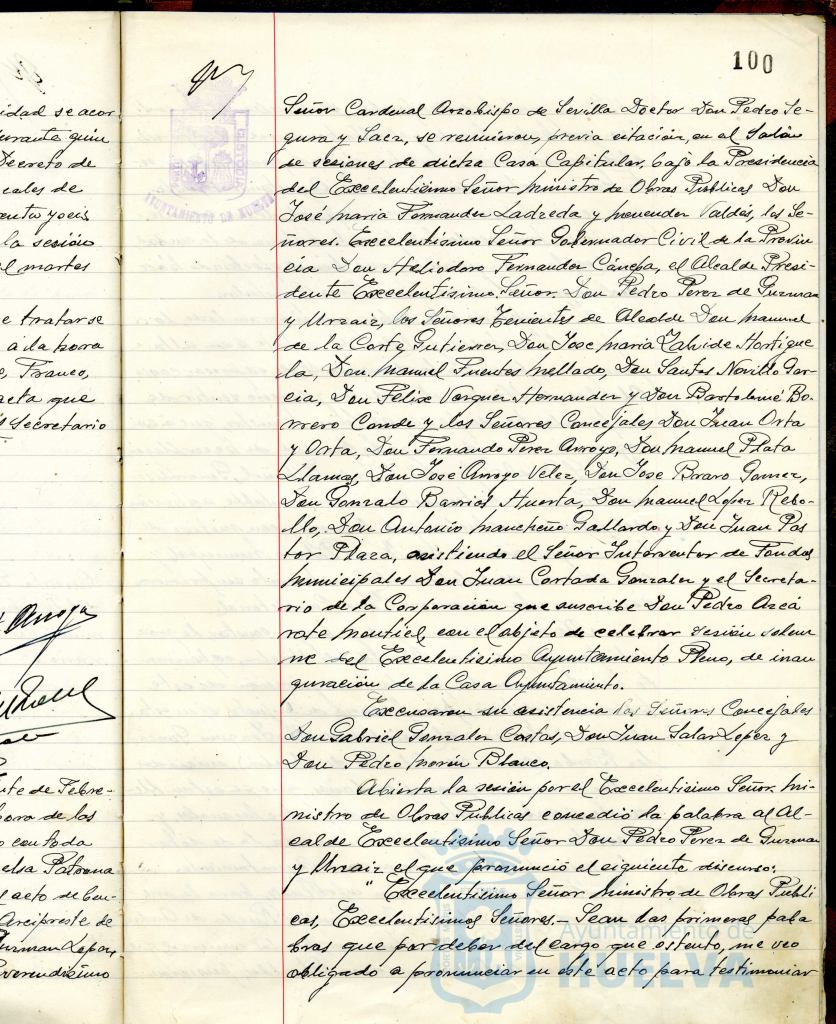 100
idad se acor
urante quin
Decreto de
cales de
enta y seis
la sesión
el martes
e tratarse
a la hora
Franco,
acta que
Secretario
Arroyo
nte de Febre-
hora de los
con toda
elsa Patrona
acto de ben-
Arcipreste de
Guzman Lopez
verendisimo
Señor Cardenal Arzobispo de Sevilla Doctor Don Pedro Se-
gura y Saez, se reunieron, previa citación, en el Salón
de sesiones de dicha Casa Capitular, bajo la Presidencia
del Excelentisimo Señor Ministro de Obras Publicas Don
José Maria Fernandez Ladreda y Menendez Valdés, los Se-
ñores. Excelentisimo Señor Gobernador Civil de la Provin
cia Don Heliodoro Fernandez Cánepa, el Alcalde Presi-
dente Excelentisimo Señor. Don Pedro Perez de Guzman
y Urzaiz, los Señores Tenientes de Alcalde Don Manuel
de la Corte Gutierrez, Don Jose Maria Zalvide Hortigue
la, Don Manuel Fuentes Mellado, Don Santos Novillo Gar-
cia, Don Felix Vazquez Hernandez y Don Bartolomé Bo-
rrero Conde y los Señores Concejales Don Juan Orta
y Orta, Don Fernando Perez Arroyo, Don Manuel Plata
Llamas, Don José Arroyo Velez, Don Jose Bravo Gomez,
Don Gonzalo Barrios Huerta, Don Manuel Lopez Rebo-
llo, Don Antonio Mancheño Gallardo y Don Juan Pas
tor Plaza, asistiendo el Señor Interventor de Fondos
Municipales Don Juan Cortada Gonzalez y el Secreta-
rio de la Corporación que suscribe Don Pedro Azcá
rate Montiel, con el objeto de celebrar sesión solem
ne del Excelentisimo Ayuntamiento Pleno, de inau
guración de la Casa Ayuntamiento.
Excusaron su asistencia los Señores Concejales
Don Gabriel Gonzalez Costas, Don Juan Salas Lopez y
Don Pedro Morón Blanco.
Abierta la sesión por el Excelentisimo Señor. Mi-
nistro de Obras Publicas concedió la palabra al Al-
calde Excelentisimo Señor Don Pedro Perez de Guzman
y Urzaiz el que pronunció el siguiente discurso:
" Excelentisimo Señor Ministro de Obras Publi
cas, Excelentisimos Señores.- Sean las primeras pala
bras que por deber del cargo que ostento, me veo
obligado a pronunciar en este acto para testimoniar
AYUNTAMIENTO DE HUELVA
Ayuntamiento de
HUELVA